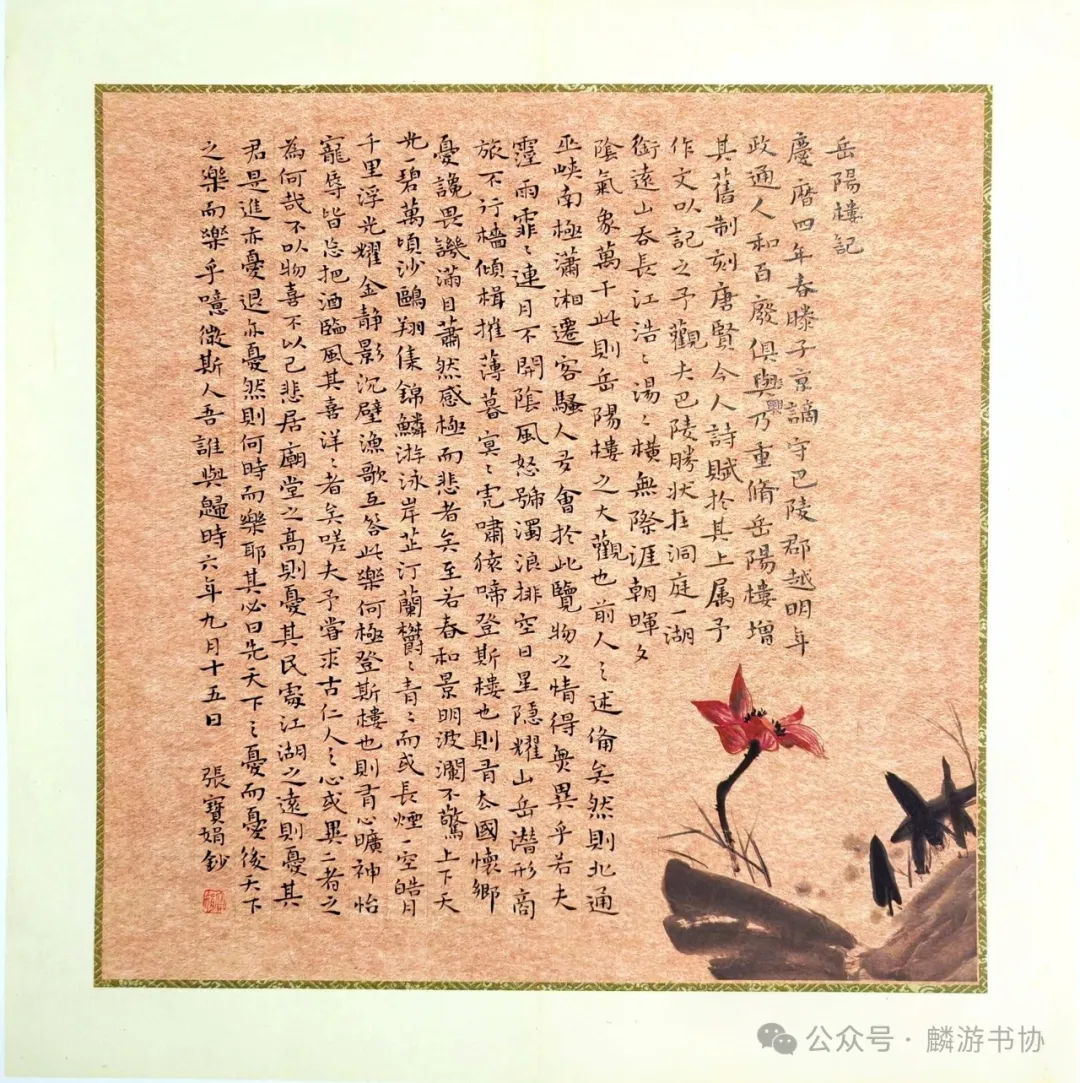 岳陽樓記
慶曆四年春滕子京謫守巴陵郡越明年
政通人和百廢俱興乃重脩岳陽樓增
其舊制刻唐賢今人詩賦於其上属予
作文以記之予觀夫巴陵勝狀在洞庭一湖
銜遠山吞長江浩〻湯〻橫無際涯朝暉夕
陰氣象萬千此則岳陽樓之大觀也前人之述備矣然則北通
巫峽南極瀟湘遷客騷人多會於此覽物之情得無異乎若夫
霪雨霏〻連月不開陰風怒號濁浪排空日星隱耀山岳潛形商
旅不行檣傾楫摧薄暮冥〻虎嘯猿啼登斯樓也則有去國懷鄉
憂讒畏譏滿目蕭然感極而悲者矣至若春和景明波瀾不驚上下天
光一碧萬頃沙鷗翔集錦鱗游泳岸芷汀蘭欝〻青〻而或長煙一空皓月
千里浮光耀金静影沉璧漁歌互答此樂何極登斯樓也則有心曠神怡
寵辱皆忘把酒臨風其喜洋〻者矣嗟夫予嘗求古仁人之心或異二者之
為何哉不以物喜不以己悲居廟堂之高則憂其民處江湖之遠則憂其
君是進亦憂退亦憂然則何時而樂耶其必曰先天下之憂而憂後天下
之樂而樂乎噫微斯人吾誰與歸時六年九月十五日 張寶娟鈔
公众号·麟游书协